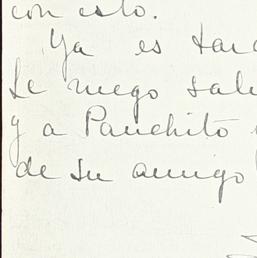 con esto.
Ya es tard
Le ruego salu
y a Panchito
de su amigo